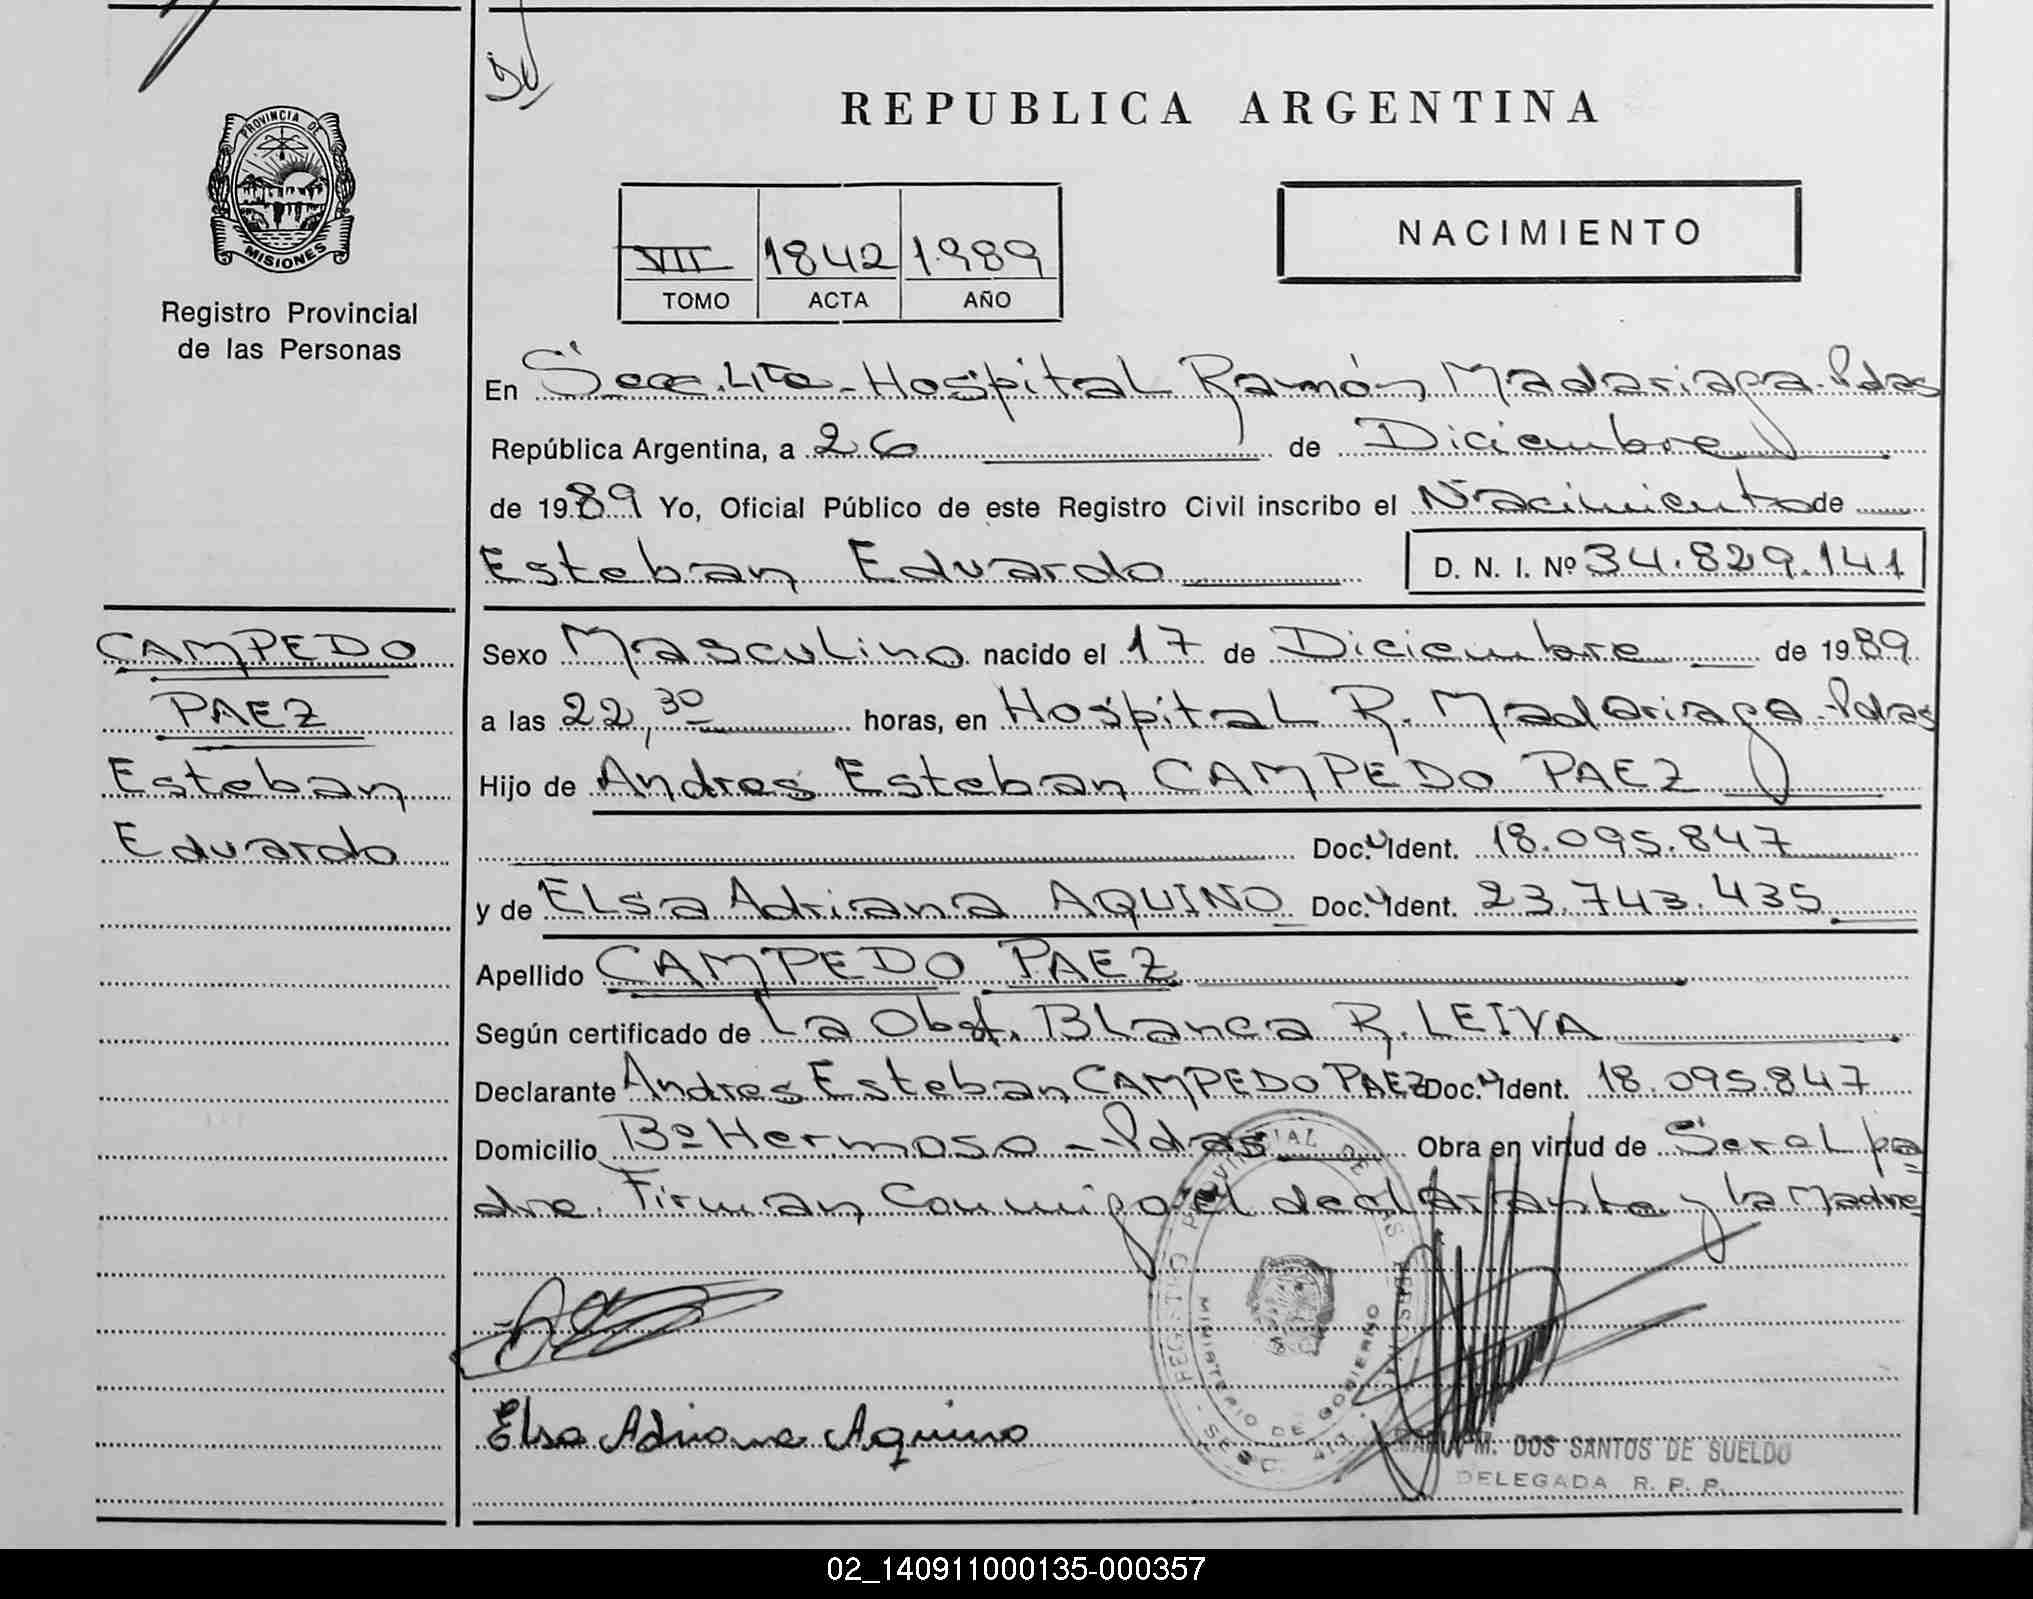 PROVINCIA DE
MISIONES
Registro Provincial
de las Personas
CAMPEDO
PAEZ
Esteban
Eduardo
REPUBLICA ARGENTINA
VII 1842 1989
TOMO ACTA AÑO
NACIMIENTO
En Secc. 4ta - Hospital Ramón Madariaga - Pdas
República Argentina, a 26 de Diciembre
de 1989 Yo, Oficial Público de este Registro Civil inscribo el Nacimiento de
Esteban Eduardo D. N. I. Nº 34.829.141
Sexo Masculino nacido el 17 de Diciembre de 1989
a las 22,30 horas, en Hospital R. Madariaga - Pdas
Hijo de Andres Esteban CAMPEDO PAEZ
Doc. Ident. 18.095.847
y de ELsa Adriana AQUINO Doc. Ident. 23.743.435
Apellido CAMPEDO PAEZ
Según certificado de La Obst. Blanca R. LEIVA
Declarante Andres Esteban CAMPEDO PAEZ Doc. Ident. 18.095.847
Domicilio Bº Hermoso - Pdas Obra en virtud de Ser el pa
dre. Firman Conmigo el declarante y la Madre
REGISTRO PROVINCIAL DE LAS PERSONAS
MINISTERIO DE GOBIERNO
Elsa Adriana Aquino
M. DOS SANTOS DE SUELDO
DELEGADA R. P. P.
02_140911000135-000357